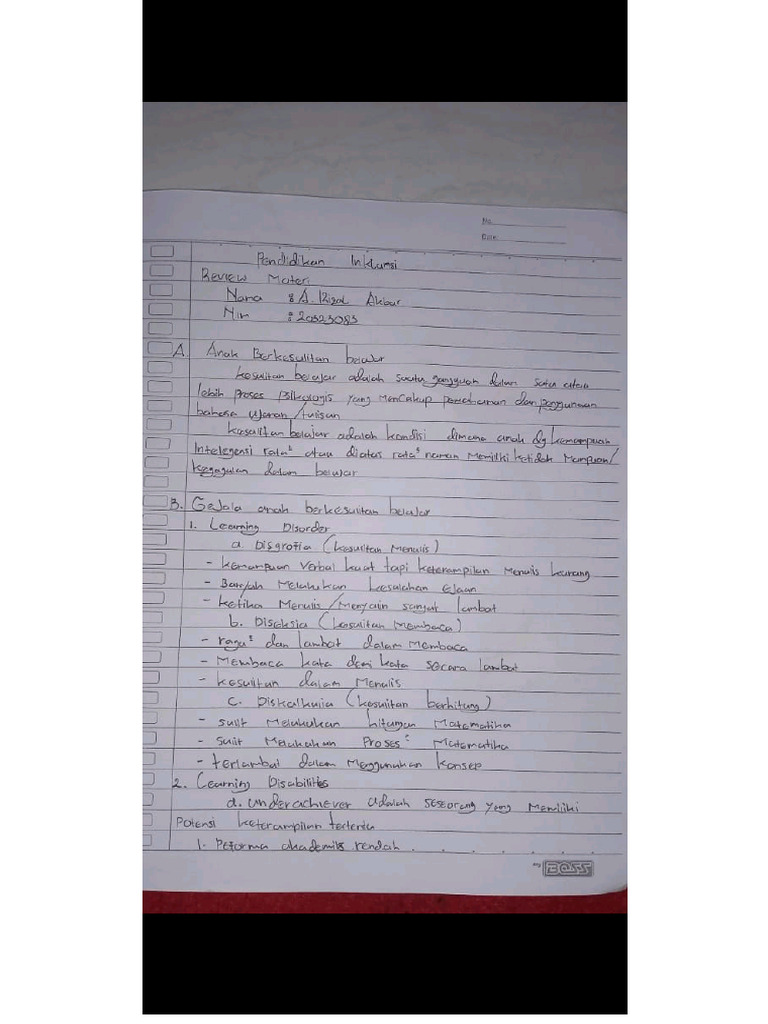 No.
Date:
Pendidikan Inklunsi
Review Materi
Nama : A. Rizal Akbar
Nim : 20323083
A. Anak Berkesulitan belajar
kesulitan belajar adalah suatu gangguan dalam satu atau
lebih proses psikologis yang mencakup pemahaman dan penggunaan
bahasa ujaran / tulisan
kesulitan belajar adalah kondisi dimana anak dg kemampuan
Intelegensi rata² atau diatas rata² namun Memiliki ketidak Mampuan/
kegagalan dalam belajar
B. Gejala anak berkesulitan belajar
1. Learning Disorder
a. Disgrafia (kesulitan Menulis)
- kemampuan verbal kuat tapi keterampilan Menulis kurang
- Banyak Melakukan kesalahan Ejaan
- ketika Menulis / Menyalin sangat lambat
b. Diseksia (kesulitan Membaca)
- ragu² dan lambat dalam Membaca
- Membaca kata demi kata secara lambat
- kesulitan dalam Menulis
c. Diskalkulia (kesulitan berhitung)
- sulit Melakukan hitungan Matematika
- sulit Melakukan Proses² Matematika
- terlambat dalam Menggunakan konsep
2. Learning Disabilities
a. Underachiever adalah seseorang yang Memiliki
Potensi keterampilan tertentu
1. Peforma akademik rendah
BOSS